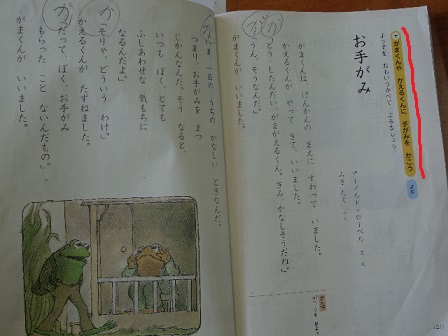 がまくんや かえるくんに 手がみを かこう
お手がみ
がまくんは、げんかんの まえに すわって いました。
かえるくんが やって きて、いいました。
「どう したんだい、がまがえるくん。きみ、かなしそうだね。」
「うん、そうなんだ。」
がまくんが いいました。
「いま、一日の うちの かなしい ときなんだ。
つまり、お手がみを まつ
じかんなんだ。そう なると、
いつも ぼく、とても
ふしあわせな 気もちに
なるんだよ。」
「そりゃ、どういう わけ。」
かえるくんが たずねました。
「だって、ぼく、お手がみ
もらった こと ないんだもの。」
がまくんが いいました。